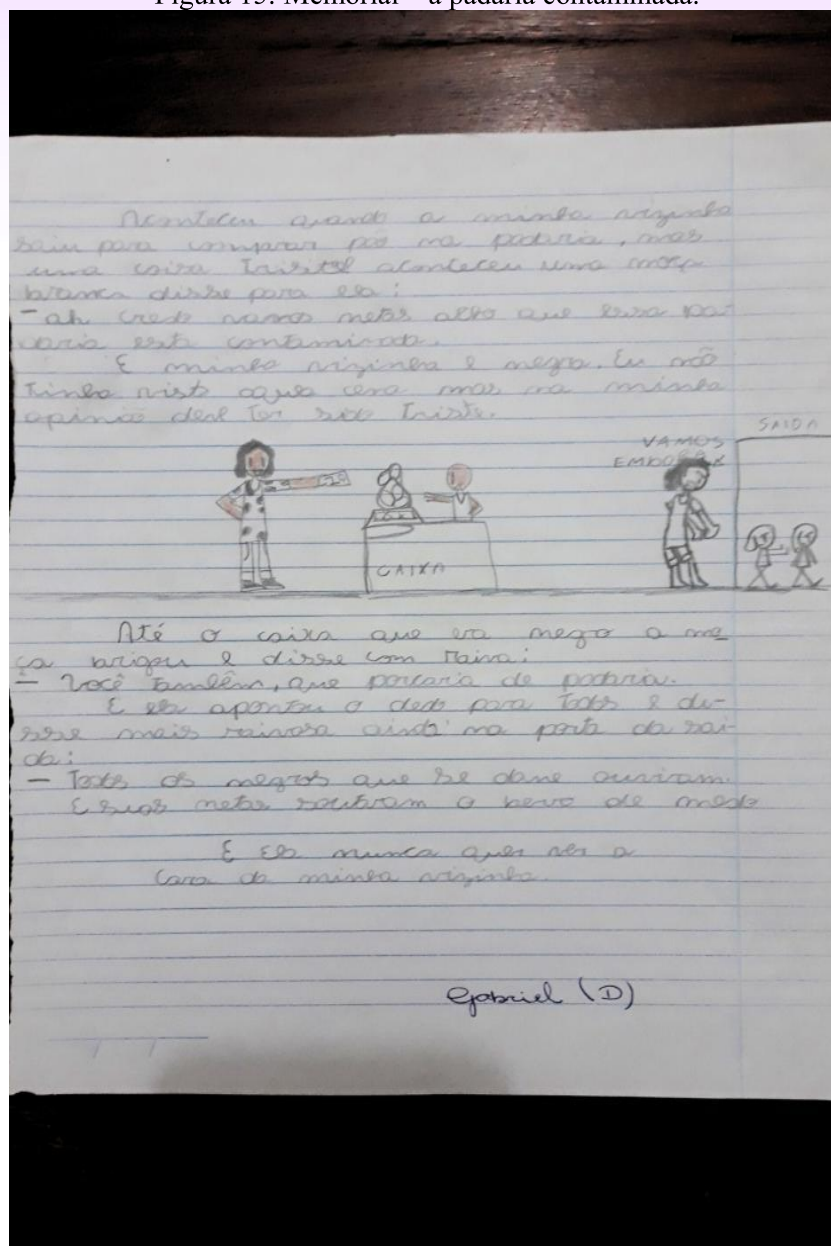 Figura 15: Memorial – a padaria contaminada.
Aconteceu quando a minha vizinha
saiu para comprar pão na padaria, mas
uma coisa Tristel aconteceu uma moça
branca disse para ela:
- ah credo vamos netas acho que essa pa-
daria está contaminada.
E minha vizinha é negra. Eu não
Tinha visto aquela cena mas na minha
opinião deve Ter sido Triste.
SAIDA
VAMOS
EMBORA
CAIXA
Até o caixa que era negro a mo
ça brigou e disse com raiva:
- Você Também, que porcaria de padaria.
E ela apontou o dedo para Todos e di-
sse mais raivosa ainda na porta da saí-
da:
- Todos os negros que se dane ouviram.
E suas netas de medo
E ela nunca quer ver a
cara da minha vizinha.
Gabriel (D)